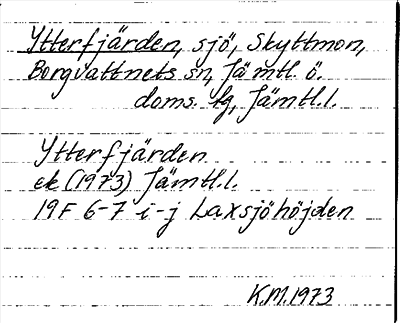 Ytterfjärden, sjö, Skyttmon,
Borgvattnets sn, Jämtl. ö.
doms. lg, Jämtl.l.
Ytterfjärden
ek (1973) Jämtl.l.
19F 6-7 i-j Laxsjöhöjden
K.M.1973